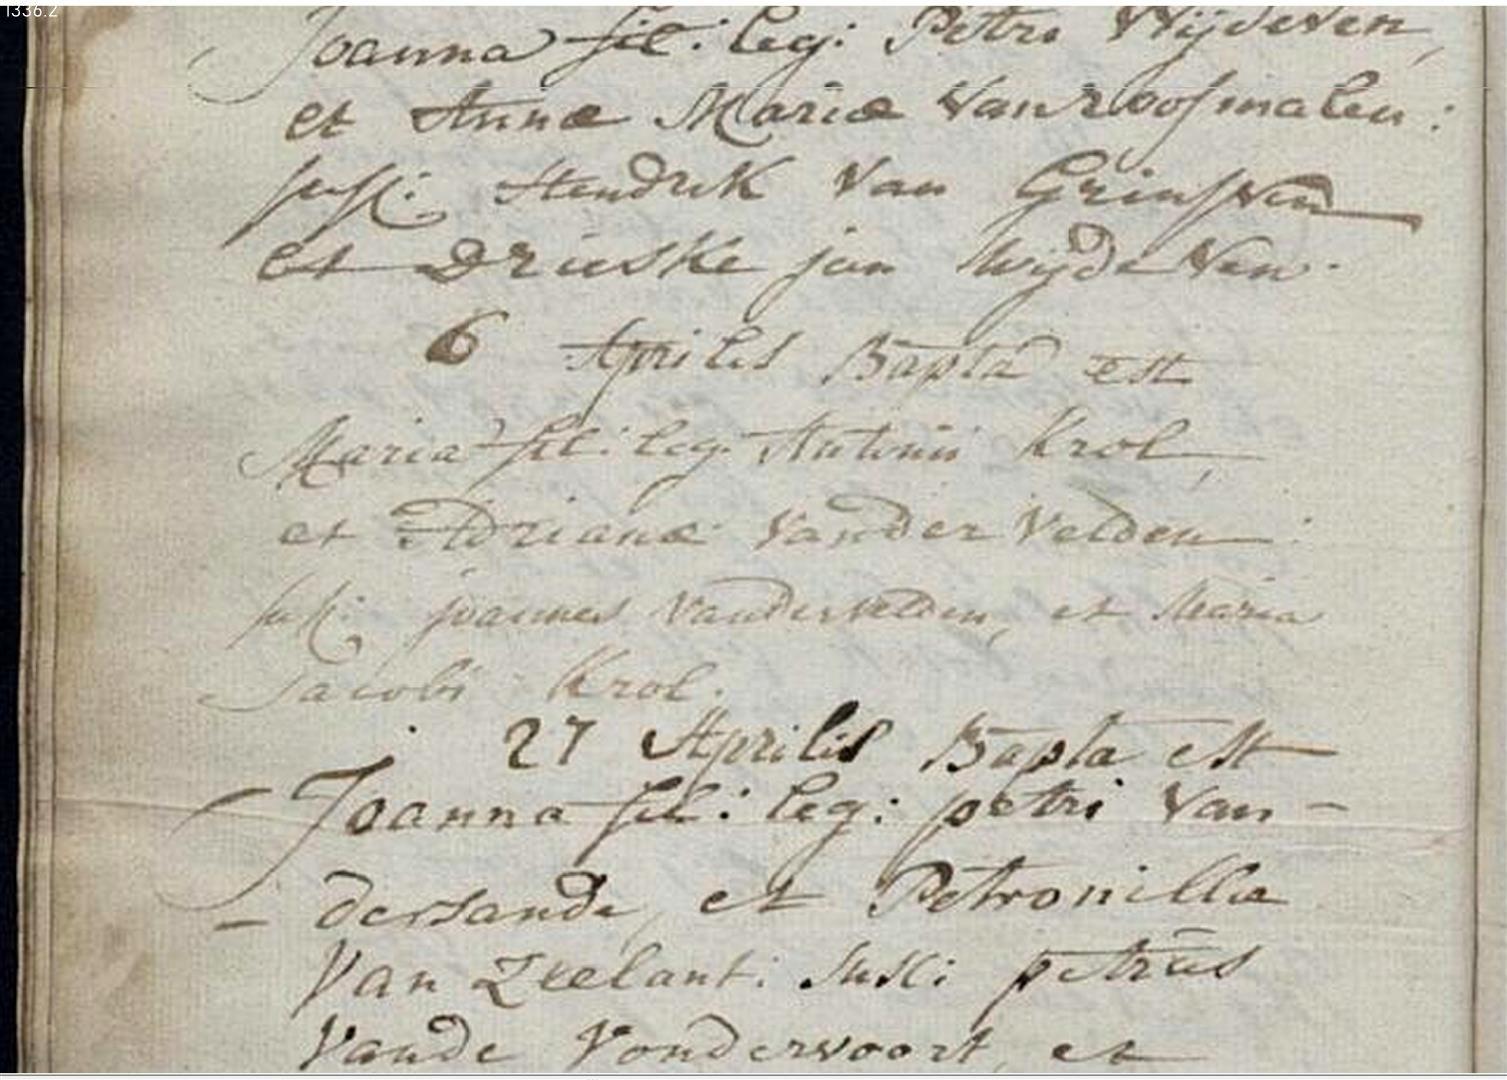 1336.2
Joanna fil: leg: Petri Wijdeven,
et Annæ Mariæ Van Roosmalen:
susc: Hendrik Van Grinsven
et Drieske jan Wijdeven.
6 Aprilis Bapta est
Maria fil: leg: Antonii Krol,
et Adrianæ Vander Velden:
susc: joannes Vandervelden, et Maria
Jacobi Krol.
27 Aprilis Bapta est
Joanna fil: leg: petri Van-
- dersande, et Petronillæ
Van Zeelant: susc: petrus
Vande Vondervoort, et